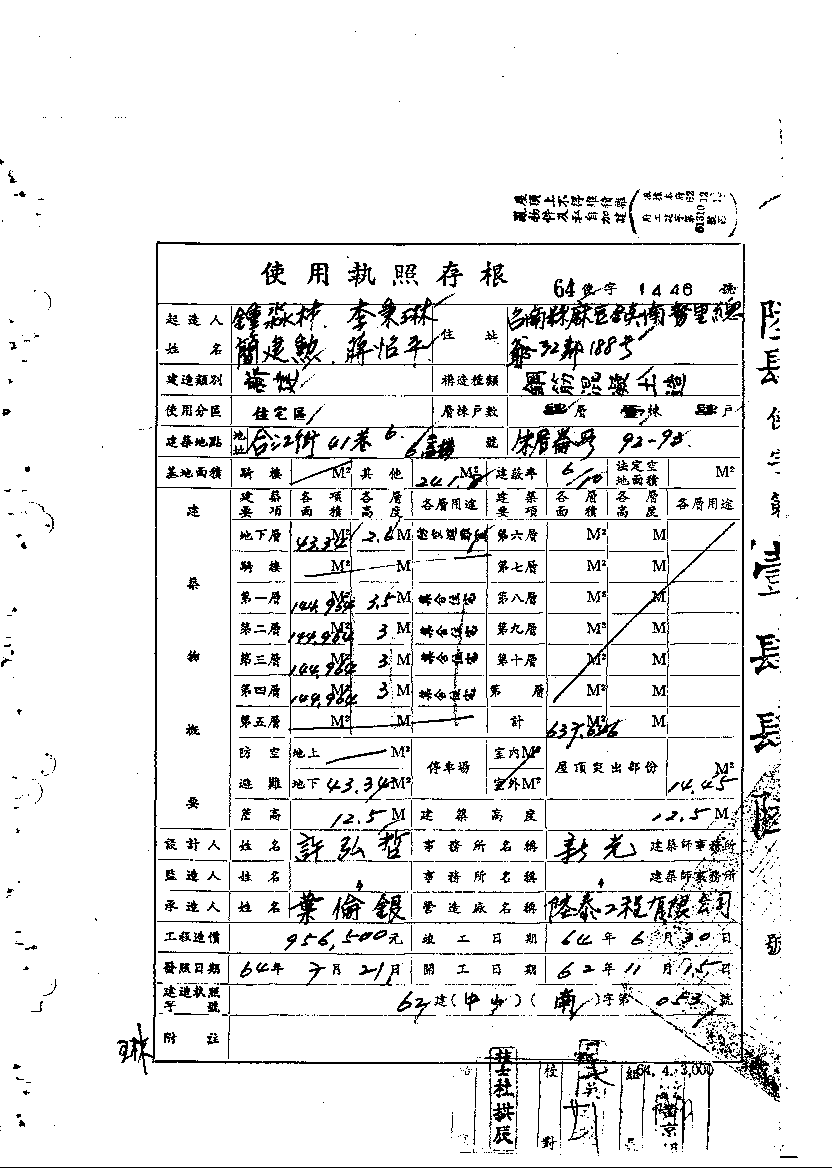 屋頂上不得堆積雜
使用執照存根
64使字1446號
起造人姓名 鍾淼林 李秉琳 簡建勲 蔣怡平 住址
32鄰188号
建造類別 構造種類 鋼筋混凝土造
使用分區 住宅區 層棟戶數 層 棟 戶
建築地點 地址 合江街41巷6 號 92-95
基地面積 騎樓 M² 其他 241 M² 建蔽率 6/10 法定空地面積 M²
建築物概要 建築要項 各項面積 各層高度 各層用途 建築要項 各層面積 各層高度 各層用途
地下層 43.34 M² 2.6 M 第六層 M² M
騎樓 M² M 第七層 M² M
第一層 144.964 M² 3.5 M 集合住宅 第八層 M² M
第二層 144.964 M² 3 M 集合住宅 第九層 M² M
第三層 144.964 M² 3 M 集合住宅 第十層 M² M
第四層 144.964 M² 3 M 集合住宅 第 層 M² M
第五層 M² M 計 637.646 M² M
防空避難 地上 M² 停車場 室內M² 屋頂突出部份 14.45 M²
地下 43.34 M² 室外M²
簷高 12.5 M 建築高度 12.5 M
設計人 姓名 許弘哲 事務所名稱 新光 建築師事務所
監造人 姓名 〃 事務所名稱 〃 建築師事務所
承造人 姓名 葉倫銀 營造廠名稱 陸泰工程有限公司
工程造價 956,500元 竣工日期 64年6月30日
發照日期 64年7月21日 開工日期 62年11月15日
建造執照字號 62建(中山)(南)字第053號
附註
琳
陸肆使字第壹肆肆陸號
技士杜拱辰
校對
64.4.3,000